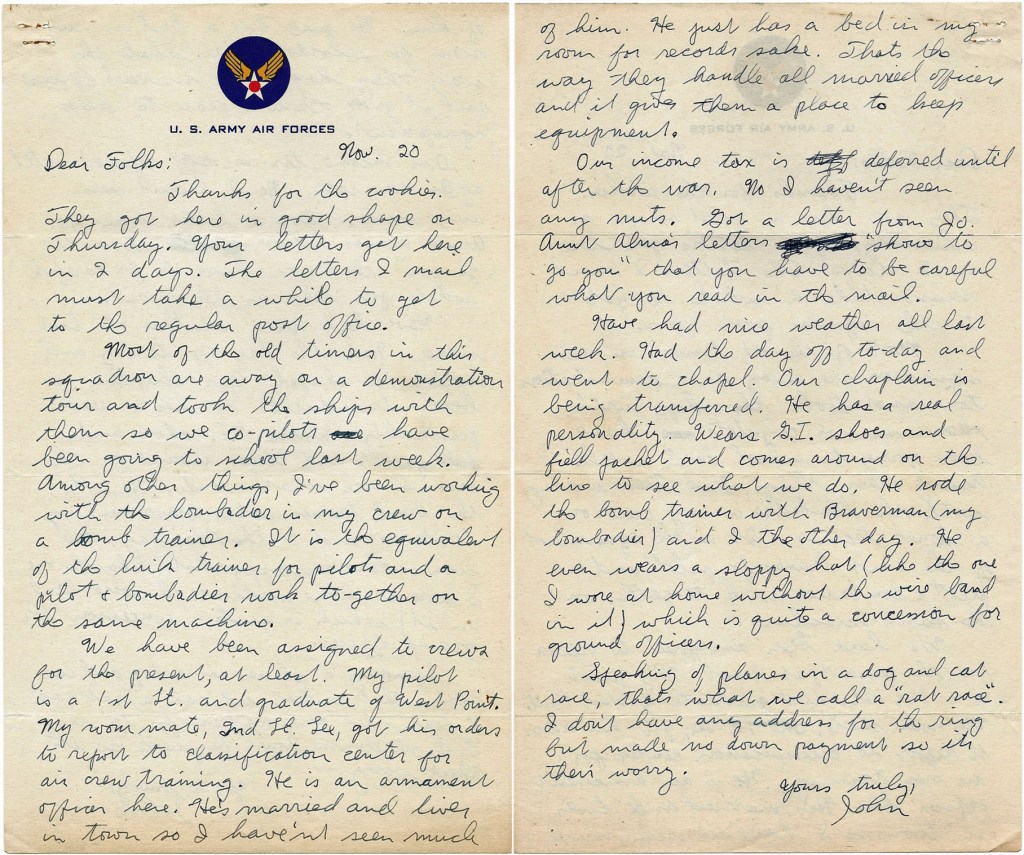 U. S. ARMY AIR FORCES
Nov. 20
Dear Folks:
Thanks for the cookies.
They got here in good shape on
Thursday. Your letters get here
in 2 days. The letters I mail
must take a while to get
to the regular post office.
Most of the old timers in this
squadron are away on a demonstration
tour and took the ships with
them so we co-pilots have
been going to school last week.
Among other things, I've been working
with the bombadier in my crew on
a bomb trainer. It is the equivalent
of the link trainer for pilots and a
pilot & bombadier work to-gether on
the same machine.
We have been assigned to crews
for the present, at least. My pilot
is a 1st Lt. and graduate of West Point.
My room mate, 2nd Lt. Lee, got his orders
to report to classification center for
air crew training. He is an armament
officer here. He's married and lives
in town so I have'nt seen much
of him. He just has a bed in my
room for records sake. Thats the
way they handle all married officers
and it gives them a place to keep
equipment.
Our income tax is deferred until
after the war. No I haven't seen
any nuts. Got a letter from Jo.
Aunt Alma's letters "shows to
go you" that you have to be careful
what you read in the mail.
Have had nice weather all last
week. Had the day off to-day and
went to chapel. Our chaplain is
being transferred. He has a real
personality. Wears G.I. shoes and
field jacket and comes around on the
line to see what we do. He rode
the bomb trainer with Braverman (my
bombadier) and I the other day. He
even wears a sloppy hat (like the one
I wore at home without the wire band
in it) which is quite a concession for
ground officers.
Speaking of planes in a dog and cat
race, thats what we call a "rat race".
I don't have any address for the ring
but made no down payment so its
their worry.
Yours truly,
John